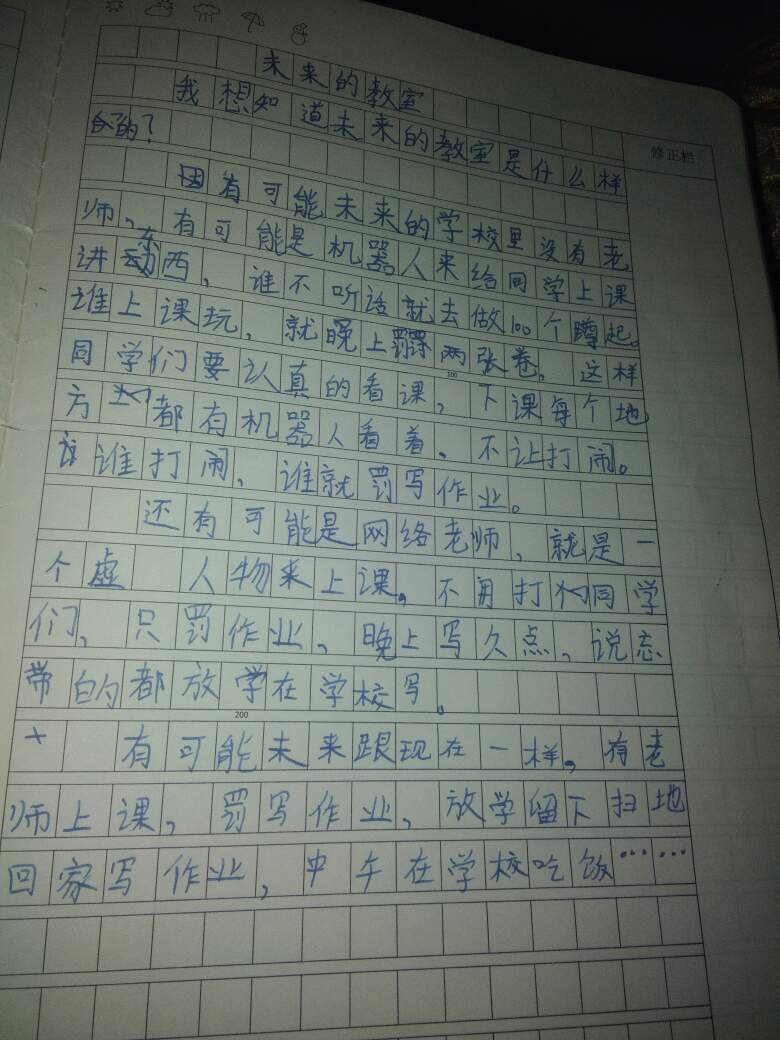 未来的教室
我想知道未来的教室是什么样
的？
修正栏
因有可能未来的学校里没有老
师，有可能是机器人来给同学上课
讲东西，谁不听话就去做100个蹲起。
谁上课玩，就晚上罚两张卷，这样
100
同学们要认真的看课，下课每个地
方都有机器人看着，不让打闹。
谁打闹，谁就罚写作业。
还有可能是网络老师，就是一
个虚 人物来上课。不用打同学
们，只罚作业，晚上写久点，说忘
带的都放学在学校写。
200
有可能未来跟现在一样，有老
师上课，罚写作业，放学留下扫地
回家写作业，中午在学校吃饭……